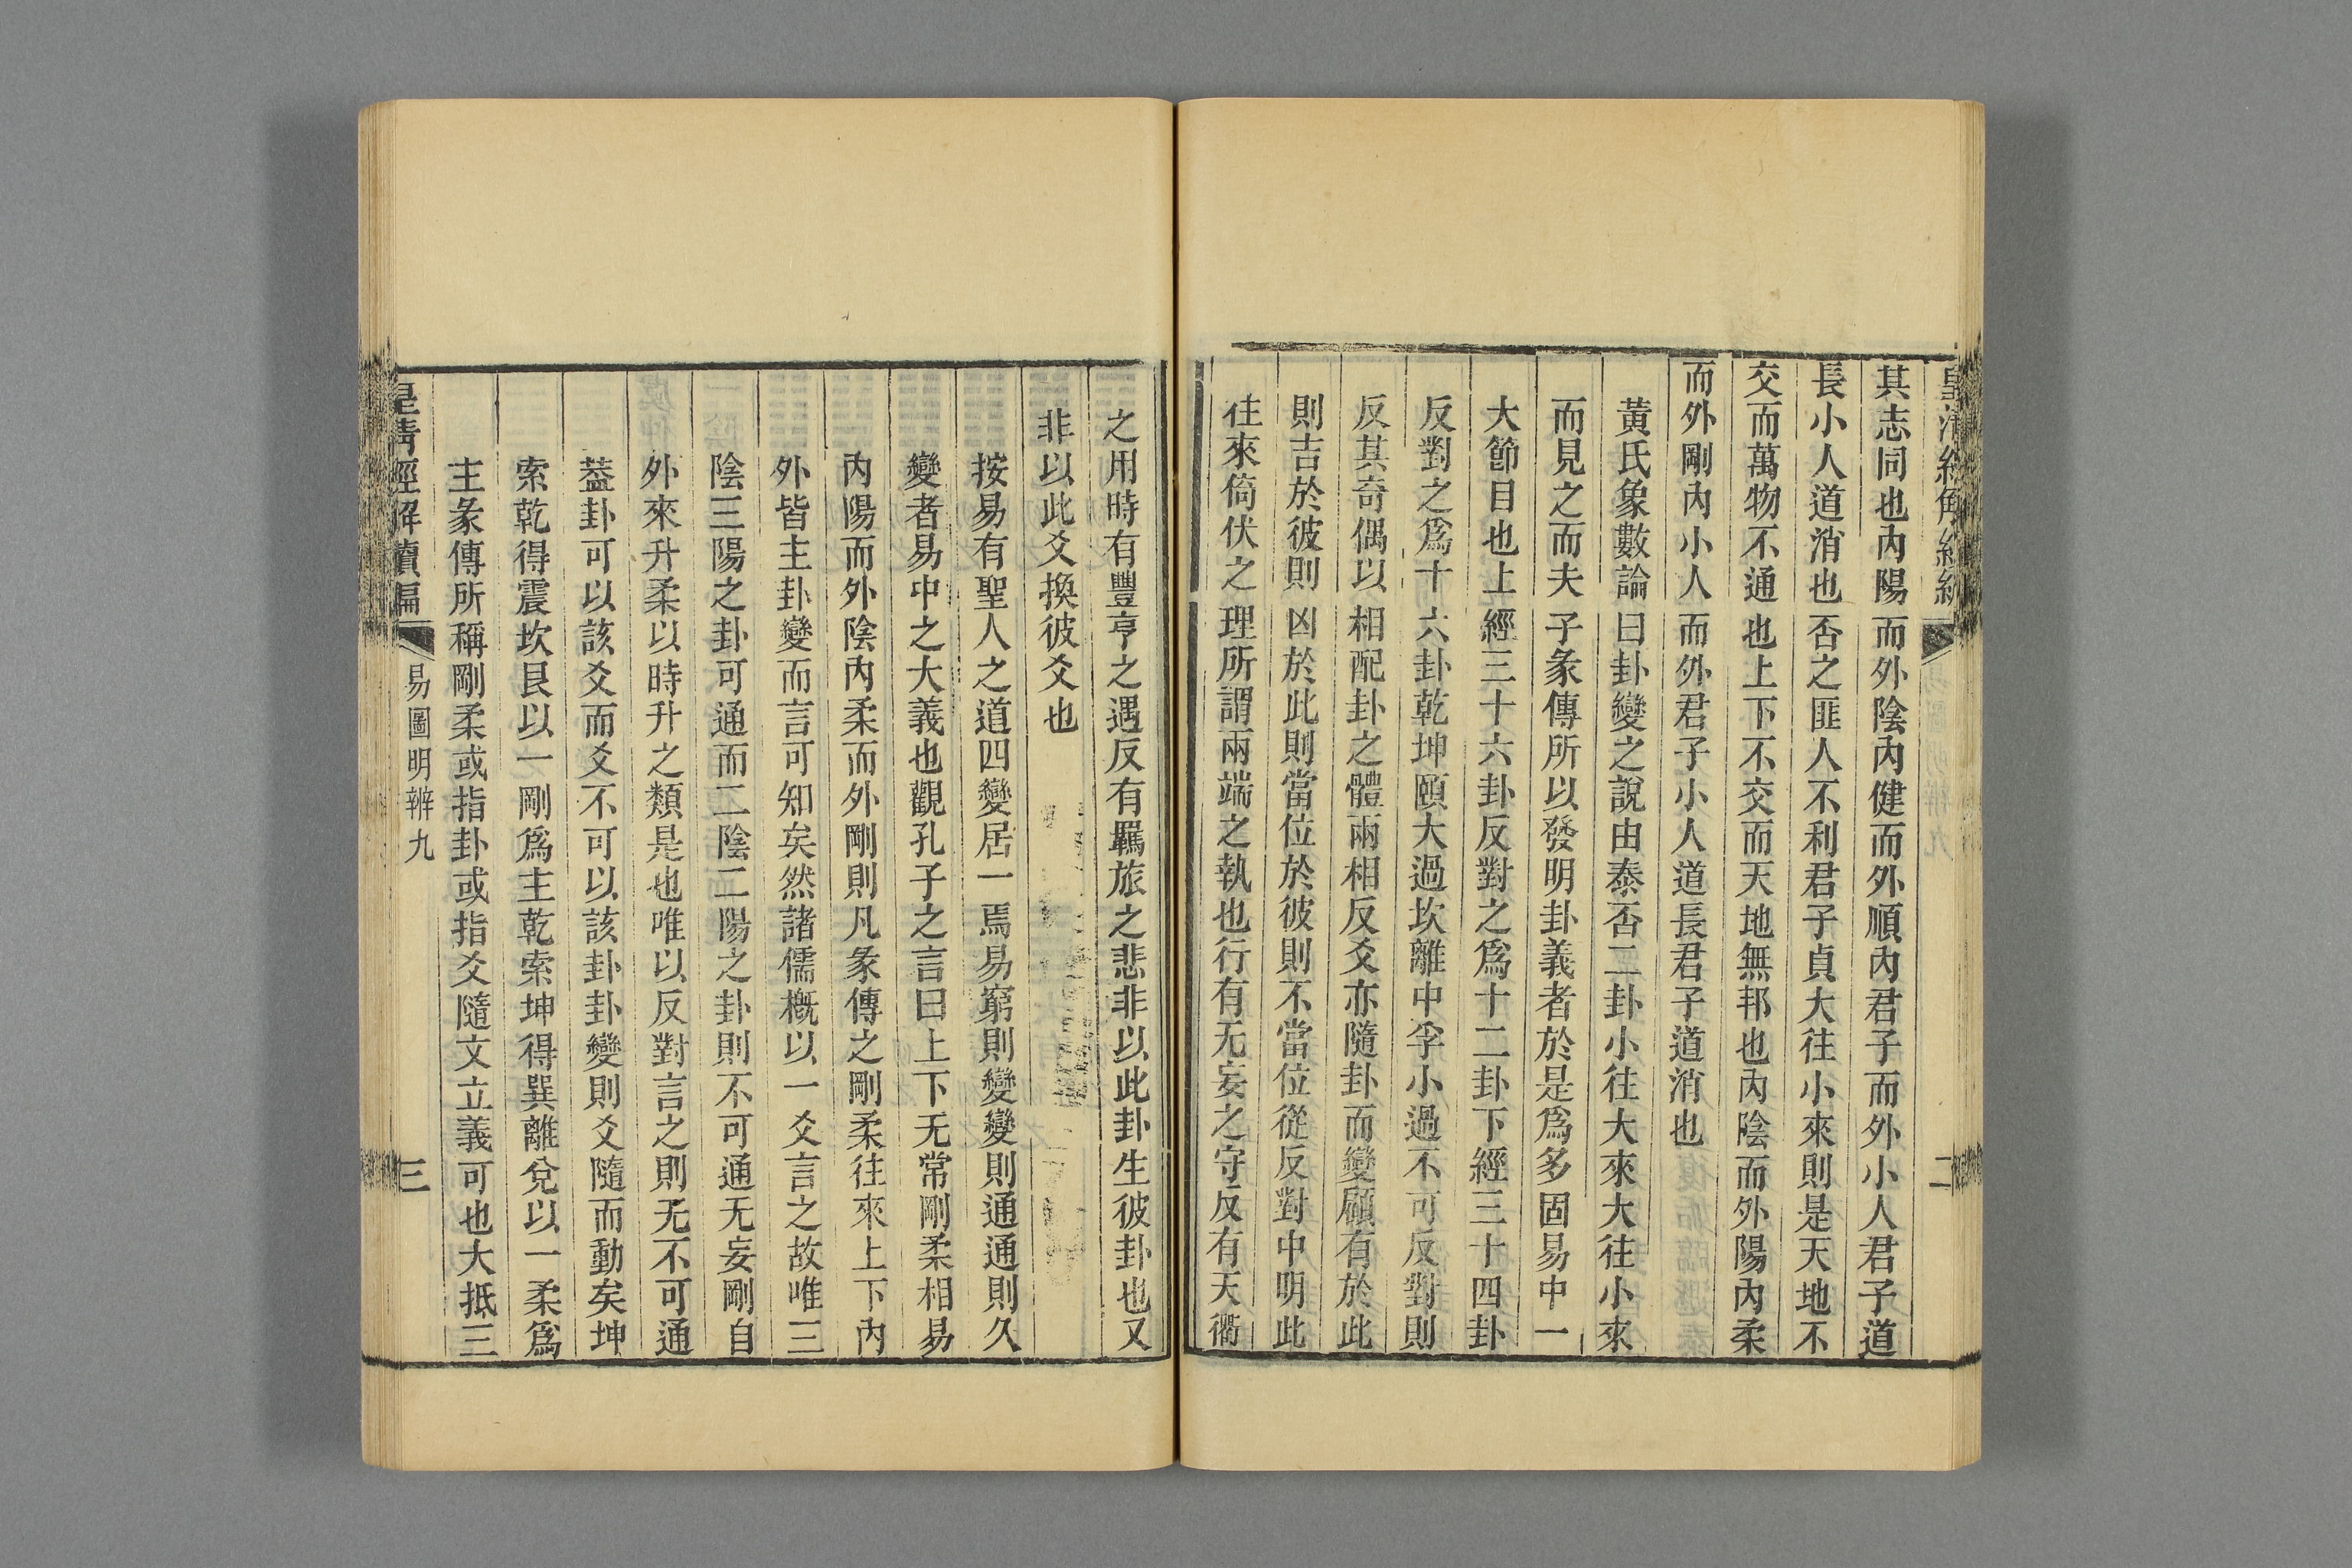 二
其志同也內陽而外陰內健而外順內君子而外小人君子道
長小人道消也否之匪人不利君子貞大往小來則是天地不
交而萬物不通也上下不交而天地無邦也內陰而外陽內柔
而外剛內小人而外君子小人道長君子道消也
黃氏象數論曰卦變之說由泰否二卦小往大來大往小來
而見之而夫子彖傳所以發明卦義者於是爲多固易中一
大節目也上經三十六卦反對之爲十二卦下經三十四卦
反對之爲十六卦乾坤頤大過坎離中孚小過不可反對則
反其奇偶以相配卦之體兩相反爻亦隨卦而變顧有於此
則吉於彼則凶於此則當位於彼則不當位從反對中明此
往來倚伏之理所謂兩端之執也行有无妄之守反有天衢
之用時有豐亨之遇反有羈旅之悲非以此卦生彼卦也又
非以此爻換彼爻也
按易有聖人之道四變居一焉易窮則變變則通通則久
變者易中之大義也觀孔子之言曰上下无常剛柔相易
內陽而外陰內柔而外剛則凡彖傳之剛柔往來上下內
外皆主卦變而言可知矣然諸儒槪以一爻言之故唯三
陰三陽之卦可通而二陰二陽之卦則不可通无妄剛自
外來升柔以時升之類是也唯以反對言之則无不可通
葢卦可以該爻而爻不可以該卦卦變則爻隨而動矣坤
索乾得震坎艮以一剛爲主乾索坤得巽離兌以一柔爲
主彖傳所稱剛柔或指卦或指爻隨文立義可也大抵三
皇清經解續編 易圖明辨九 三